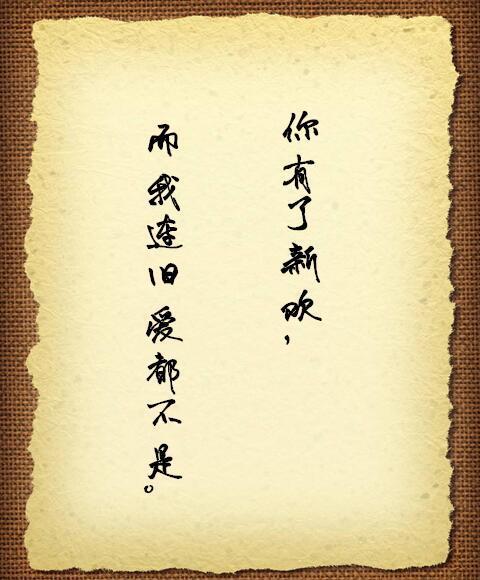 你有了新欢，
而我连旧爱都不是。